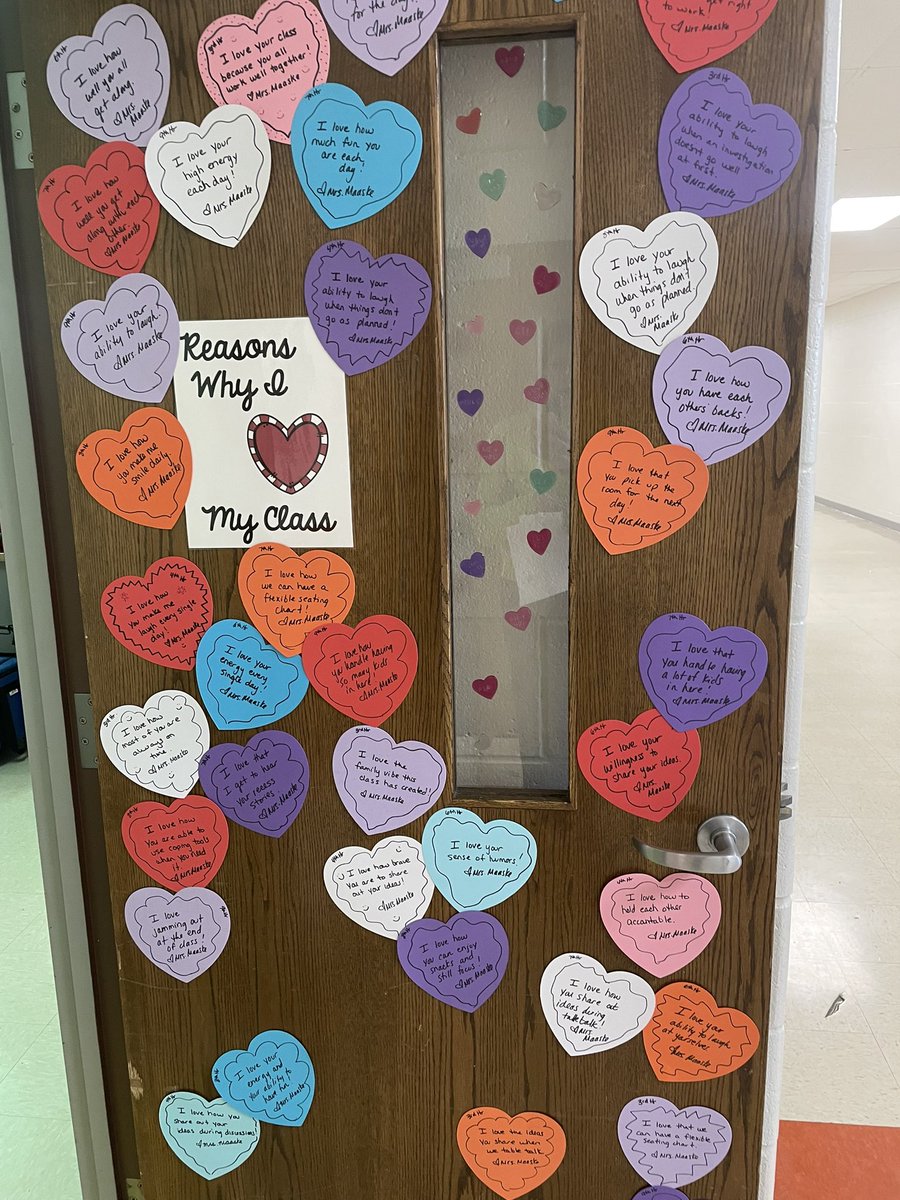 for the day!
♡Mrs. Maaske
get right
to work!
♡Mrs. Maaske
6th Hr
I love how
well you all
get along.
♡Mrs.
Maaske
3rd Hr
I love your class
because you all
work well together!
♡Mrs. Maaske
9th Hr
I love your
high energy
each day!
♡Mrs. Maaske
I love how
much fun you
are each
day!
♡Mrs. Maaske
3rd Hr
I love your
ability to laugh
when an investigation
doesn't go well
at first.
♡Mrs. Maaske
I love how
well you get
along with each
other.
♡Mrs. Maaske
I love your
ability to laugh
when things don't
go as planned!
♡Mrs. Maaske
I love your
ability to laugh
when things don't
go as planned.
♡Mrs.
Maaske
I love your
ability to laugh.
♡Mrs. Maaske
Reasons
Why I
My Class
6th Hr
I love how
you have each
others' backs!
♡Mrs. Maaske
I love how
you make me
smile daily.
♡Mrs. Maaske
9th Hr
I love that
you pick up the
room for the next
day!
♡Mrs. Maaske
7th Hr
I love how
we can have a
flexible seating
chart!
♡Mrs. Maaske
4th Hr
I love how
you make me
laugh every single
day!
♡Mrs. Maaske
6th Hr
I love your
energy every
single day!
♡Mrs. Maaske
I love how
you handle having
so many kids
in here!
♡Mrs. Maaske
7th Hr
I love that
you handle having
a lot of kids
in here!
♡Mrs. Maaske
I love how
most of you are
always on
time.
♡Mrs. Maaske
I love that
I get to hear
your recess
stories
♡Mrs. Maaske
3rd Hr
I love the
family vibe this
class has created!
♡Mrs. Maaske
6th Hr
I love your
willingness to
share your ideas.
♡Mrs.
Maaske
I love how
you are able to
use coping tools
when you need
it.
♡Mrs. Maaske
I love how brave
you are to share
out your ideas!
♡Mrs. Maaske
6th Hr
I love your
sense of humors!
♡Mrs. Maaske
I love
jamming out
at the end
of class!
♡Mrs. Maaske
I love how
you can enjoy
snacks and
still focus!
♡Mrs. Maaske
I love how to
hold each other
accantable.
♡Mrs. Maaske
7th Hr
I love how
you share out
ideas during
table talk!
♡Mrs. Maaske
6th Hr
I love your
ability to laugh
at yourselves
♡Mrs. Maaske
I love your
energy and
your ability to
have fun!
♡Mrs. Maaske
I love how you
share out your
ideas during discussions!
♡Mrs. Maaske
3rd Hr
I love the ideas
you share when
we table talk
♡Mrs. Maaske
3rd Hr
I love that we
can have a flexible
seating chart.
♡Mrs. Maaske